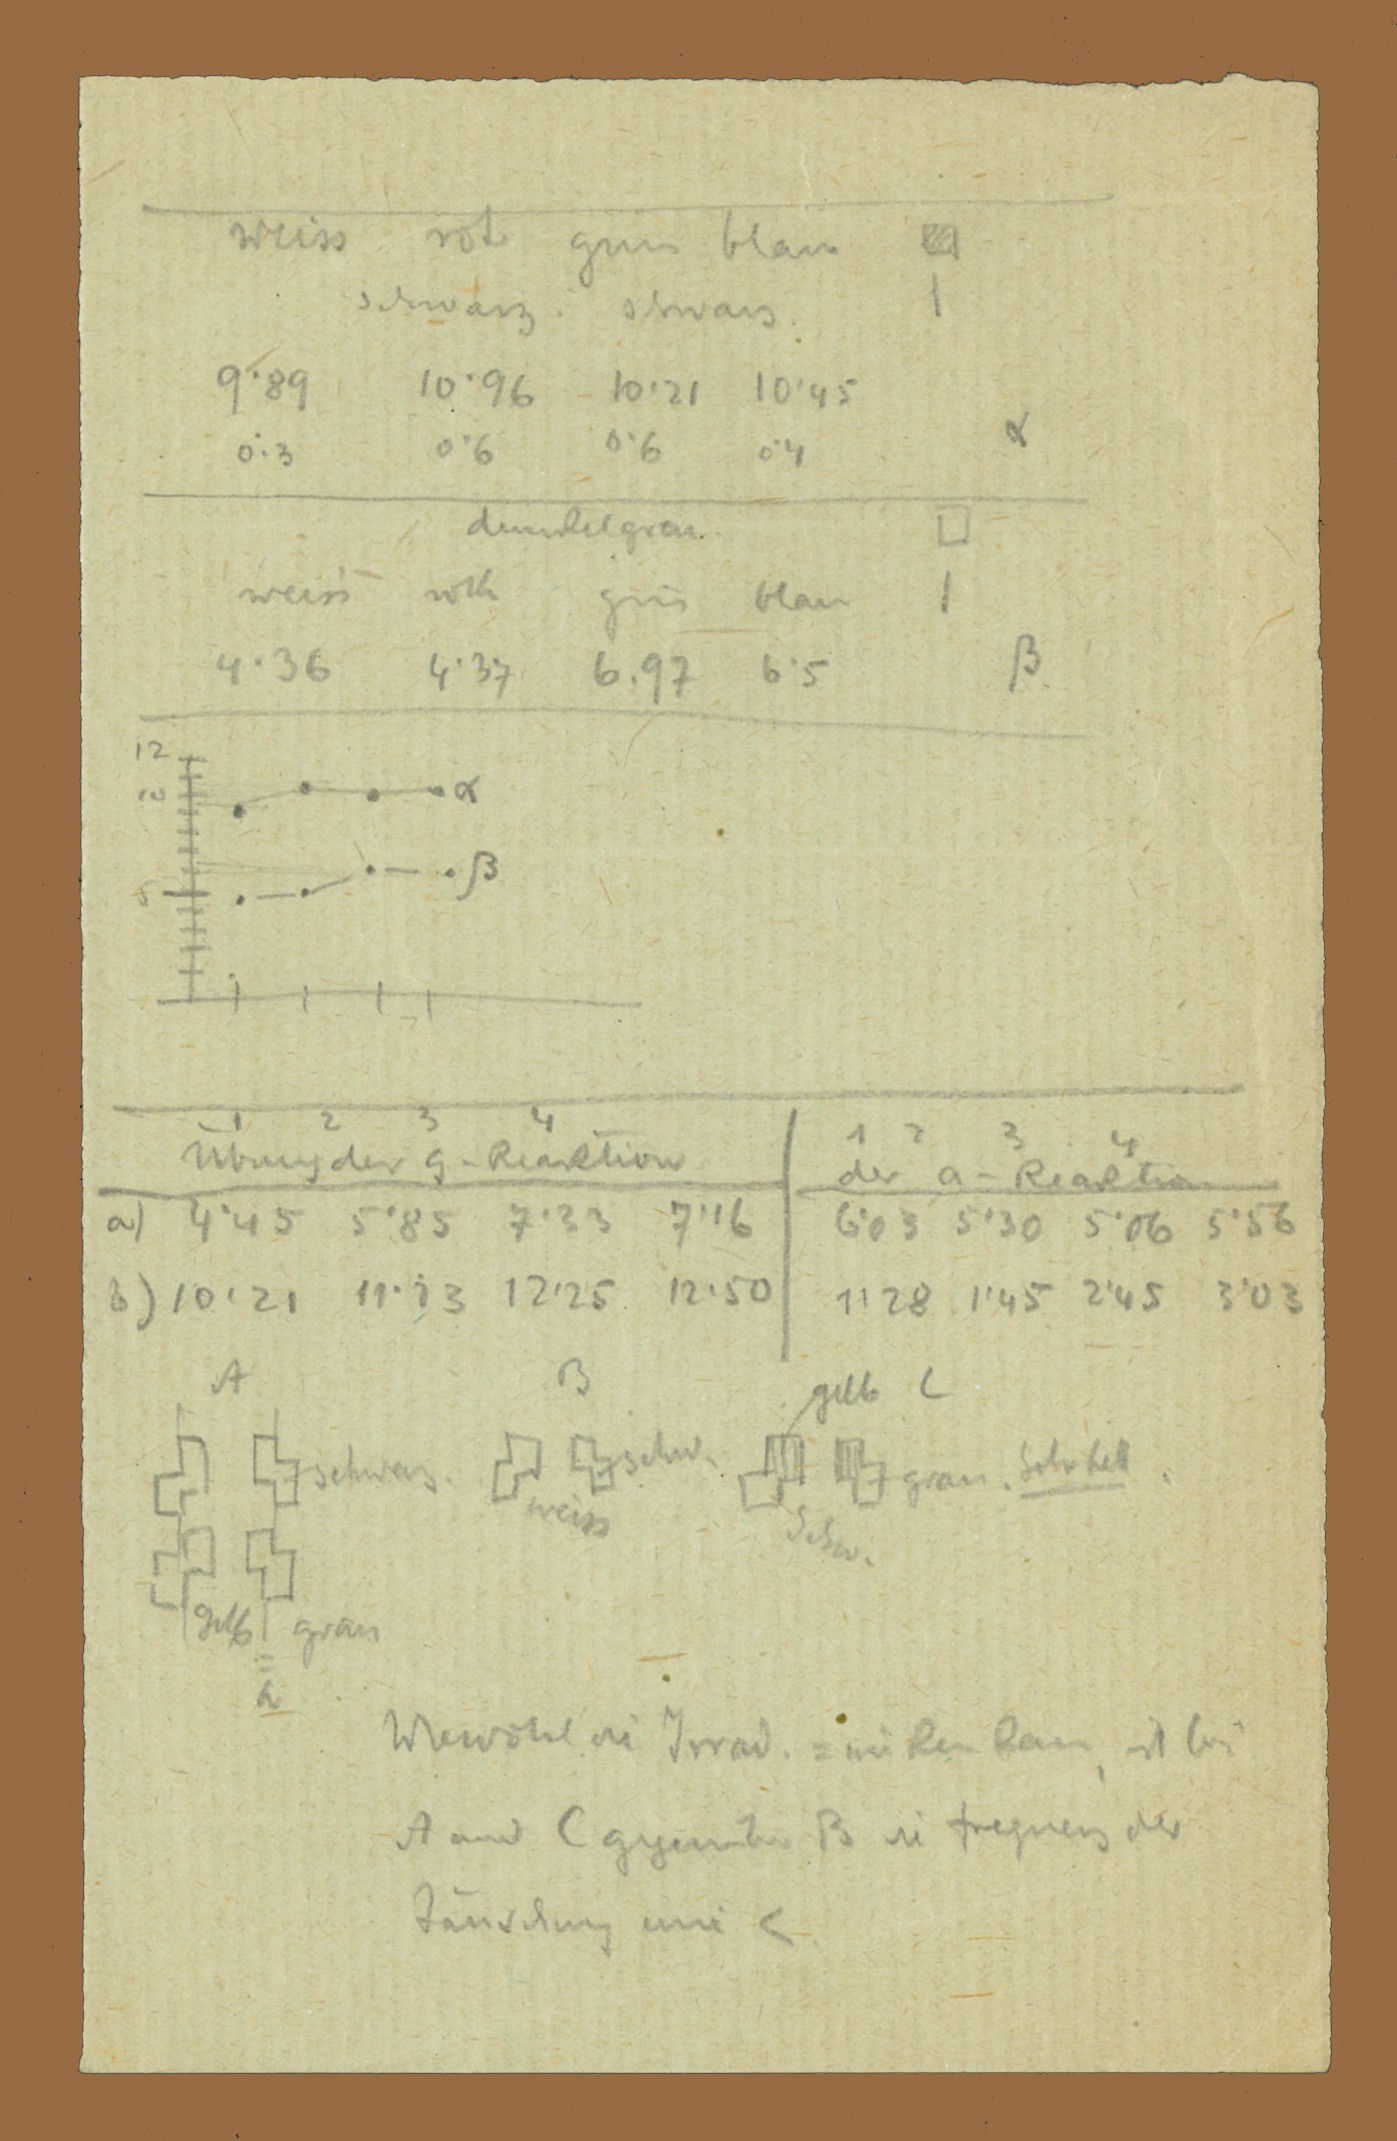 weiss rot grün blau
schwarz. schwarz.
9·89 10·96 10·21 10·45
0·3 0·6 0·6 0·4 α
dunkelgrau.
weiss roth grün blau
4·36 4·37 6.97 6·5 β
12
10 α
β
5
1 2 3 4 1 2 3 4
Übung der g-Reaktion der a-Reaktion
a) 4·45 5·85 7·33 7·16 6·03 5·30 5·06 5·56
b) 10·21 11·23 12·25 12·50 1·28 1·45 2·45 3·03
A B gelb C
schwarz. schw. grau. Sehr hell.
weiss Schw.
gelb grau
=
Wiewohl die Irrad. = wirken kann, ist bei
A und C gegenüber B die Frequenz der
Täuschung eine <